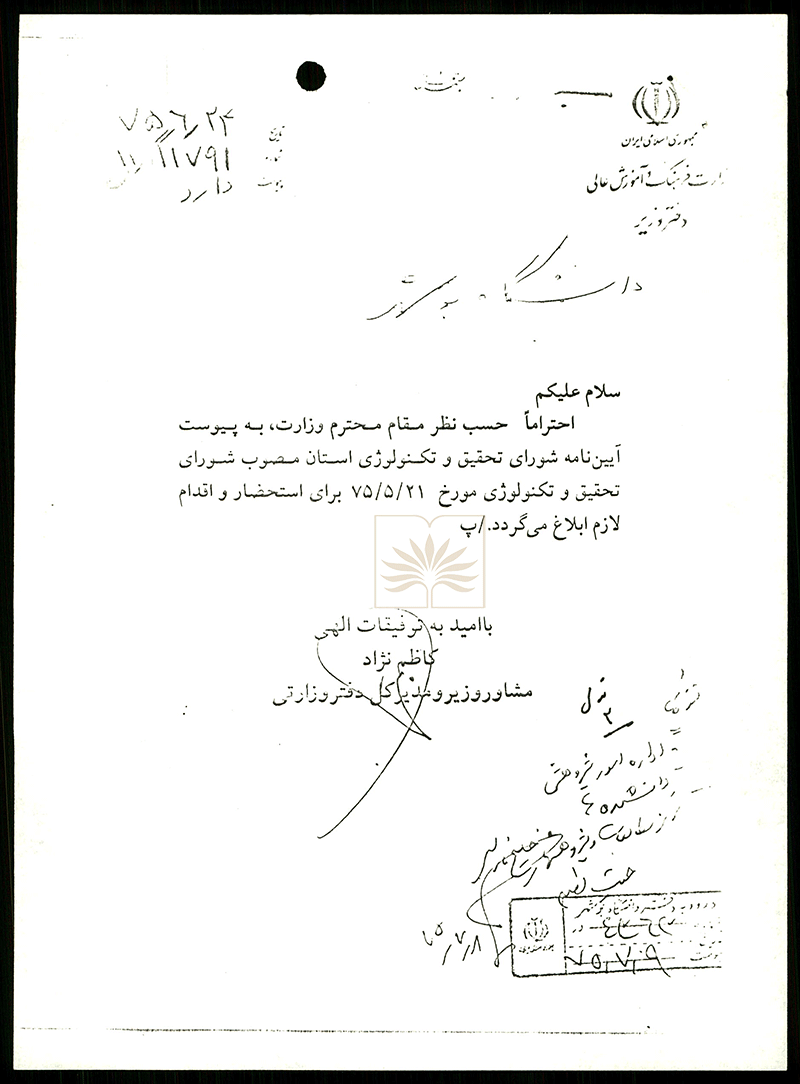 جمهوری اسلامی ایران
وزارت فرهنگ و آموزش عالی
دفتر وزیر
تاریخ ۷۵/۶/۲۴
۱۱۷۹۱
پیوست دارد
دانشگاه
سلام علیکم
احتراماً حسب نظر مقام محترم وزارت، به پیوست
آیین‌نامه شورای تحقیق و تکنولوژی استان مصوب شورای
تحقیق و تکنولوژی مورخ ۷۵/۵/۲۱ برای استحضار و اقدام
لازم ابلاغ می‌گردد./پ
باامید به توفیقات الهی
کاظم نژاد
مشاور وزیر و مدیرکل دفتر وزارتی
اداره امور پژوهشی
دانشکده ها
۷۵/۷/۸
۷۵/۷/۹